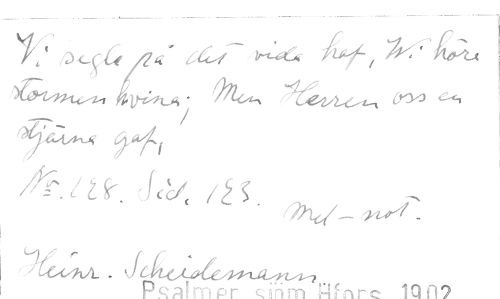 Vi segla på det vida haf, Wi höre
stormen hvina; Men Herren oss en
stjärna gaf,
No. 128. Sid. 123.
Mel-not.
Heinr. Scheidemann.
Psalmer sjöm Hfors. 1902